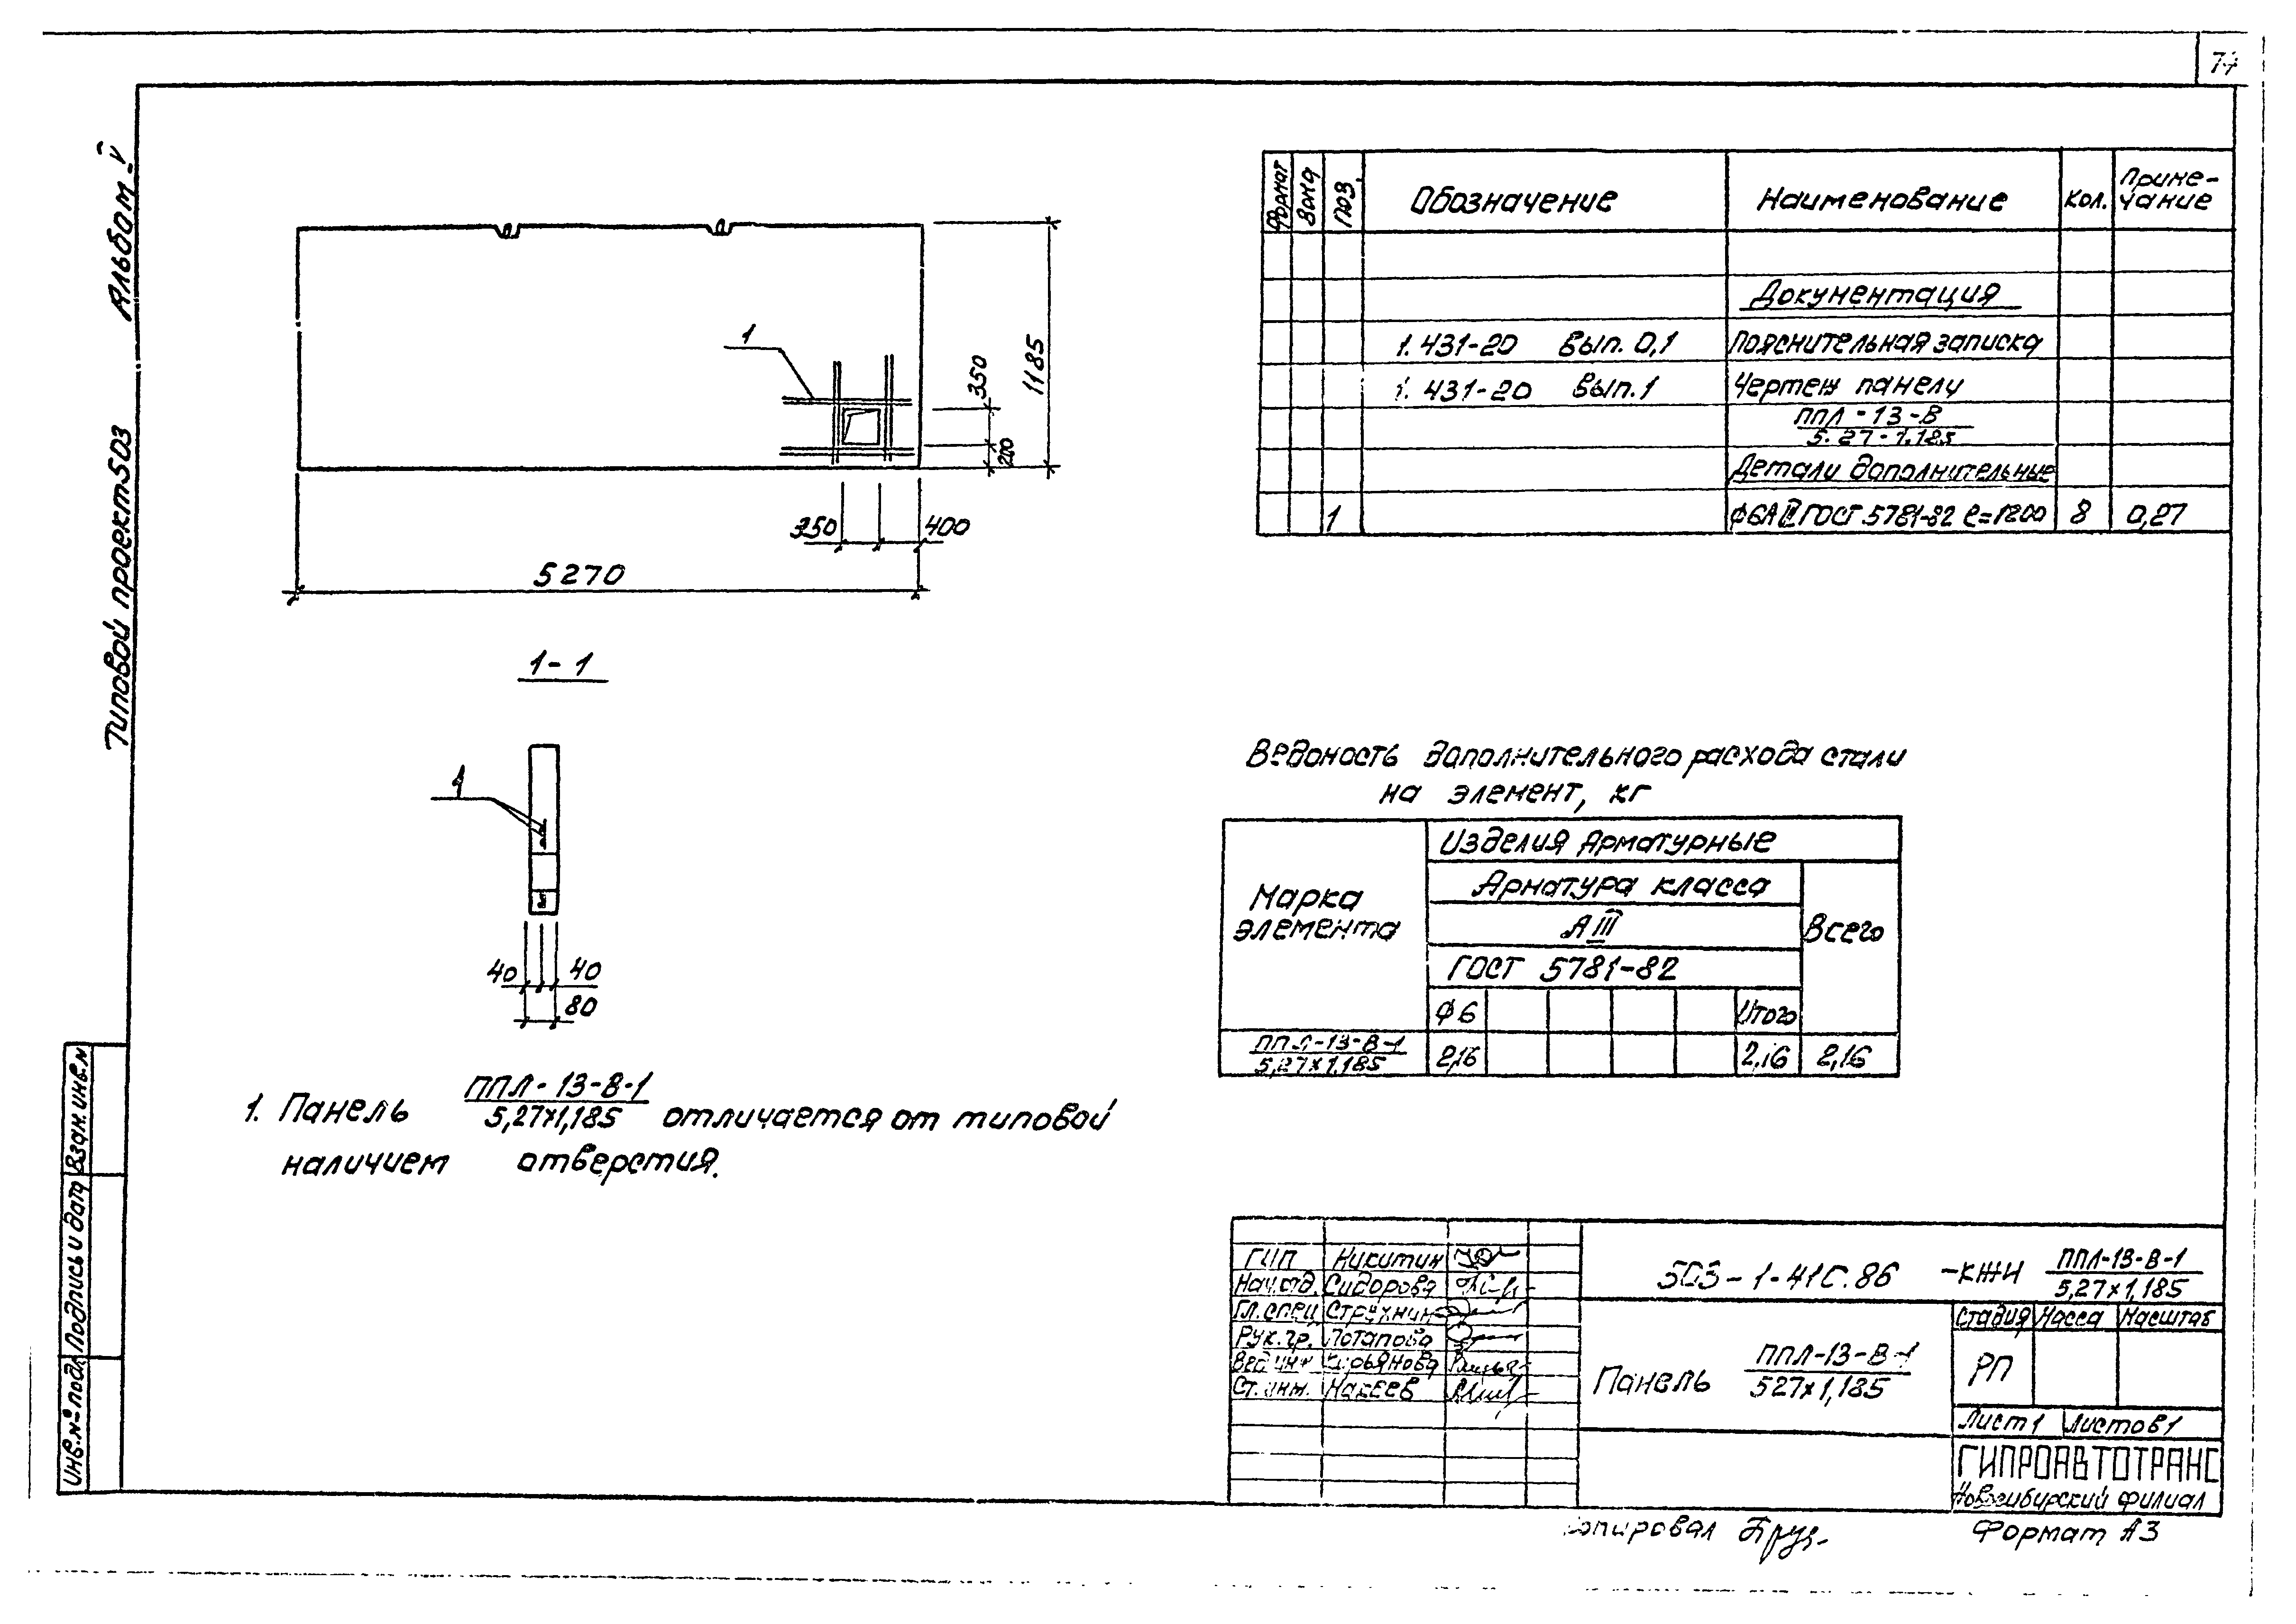 74
Альбом-V
Типовой проект 503
1
350
1185
200
350
400
5270
1-1
1
40
40
80
1. Панель ППЛ-13-В-1
5,27х1,185 отличается от типовой
наличием отверстия.
Формат
Зона
Поз.
Обозначение
Наименование
Кол.
Приме-
чание
Документация
1.431-20 Вып. 0,1 Пояснительная записка
1.431-20 Вып. 1 Чертеж панели
ППЛ-13-В
5.27-1.185
Детали дополнительные
1 ф6АIII ГОСТ 5781-82 ℓ=1200 8 0,27
Ведомость дополнительного расхода стали
на элемент, кг
Марка
элемента
Изделия Арматурные
Арматура класса
АIII
ГОСТ 5781-82
Всего
ф6 Итого
ППЛ-13-В-1
5,27х1,185
2,16 2,16 2,16
ГИП Никитин
Нач.отд. Сидорова
Гл.спец Струхнин
Рук.гр. Потапова
Вед.инж Кирьянова
Ст.инж. Макеев
503-1-41С.86 -КЖИ ППЛ-13-В-1
5,27х1,185
Панель ППЛ-13-В-1
527х1,185
Стадия Масса Масштаб
РП
Лист 1 Листов 1
ГИПРОАВТОТРАНС
Новосибирский филиал
Копировал
Формат А3
Взам. инв.№
Подпись и дата
Инв.№ подл